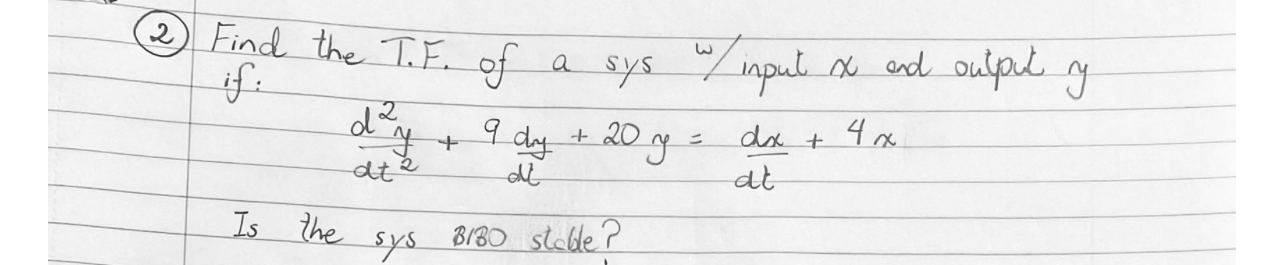 ② Find the T.F. of a sys w/ input x and output y
if:
d²y/dt² + 9 dy/dt + 20 y = dx/dt + 4x
Is the sys BIBO stable?